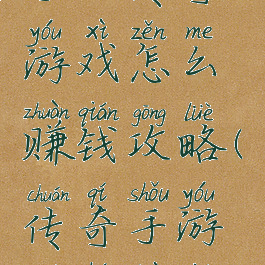 yóu xì zěn me
游戏怎么
zhuàn qián gōng lüè
赚钱攻略(
chuán qí shǒu yóu
传奇手游